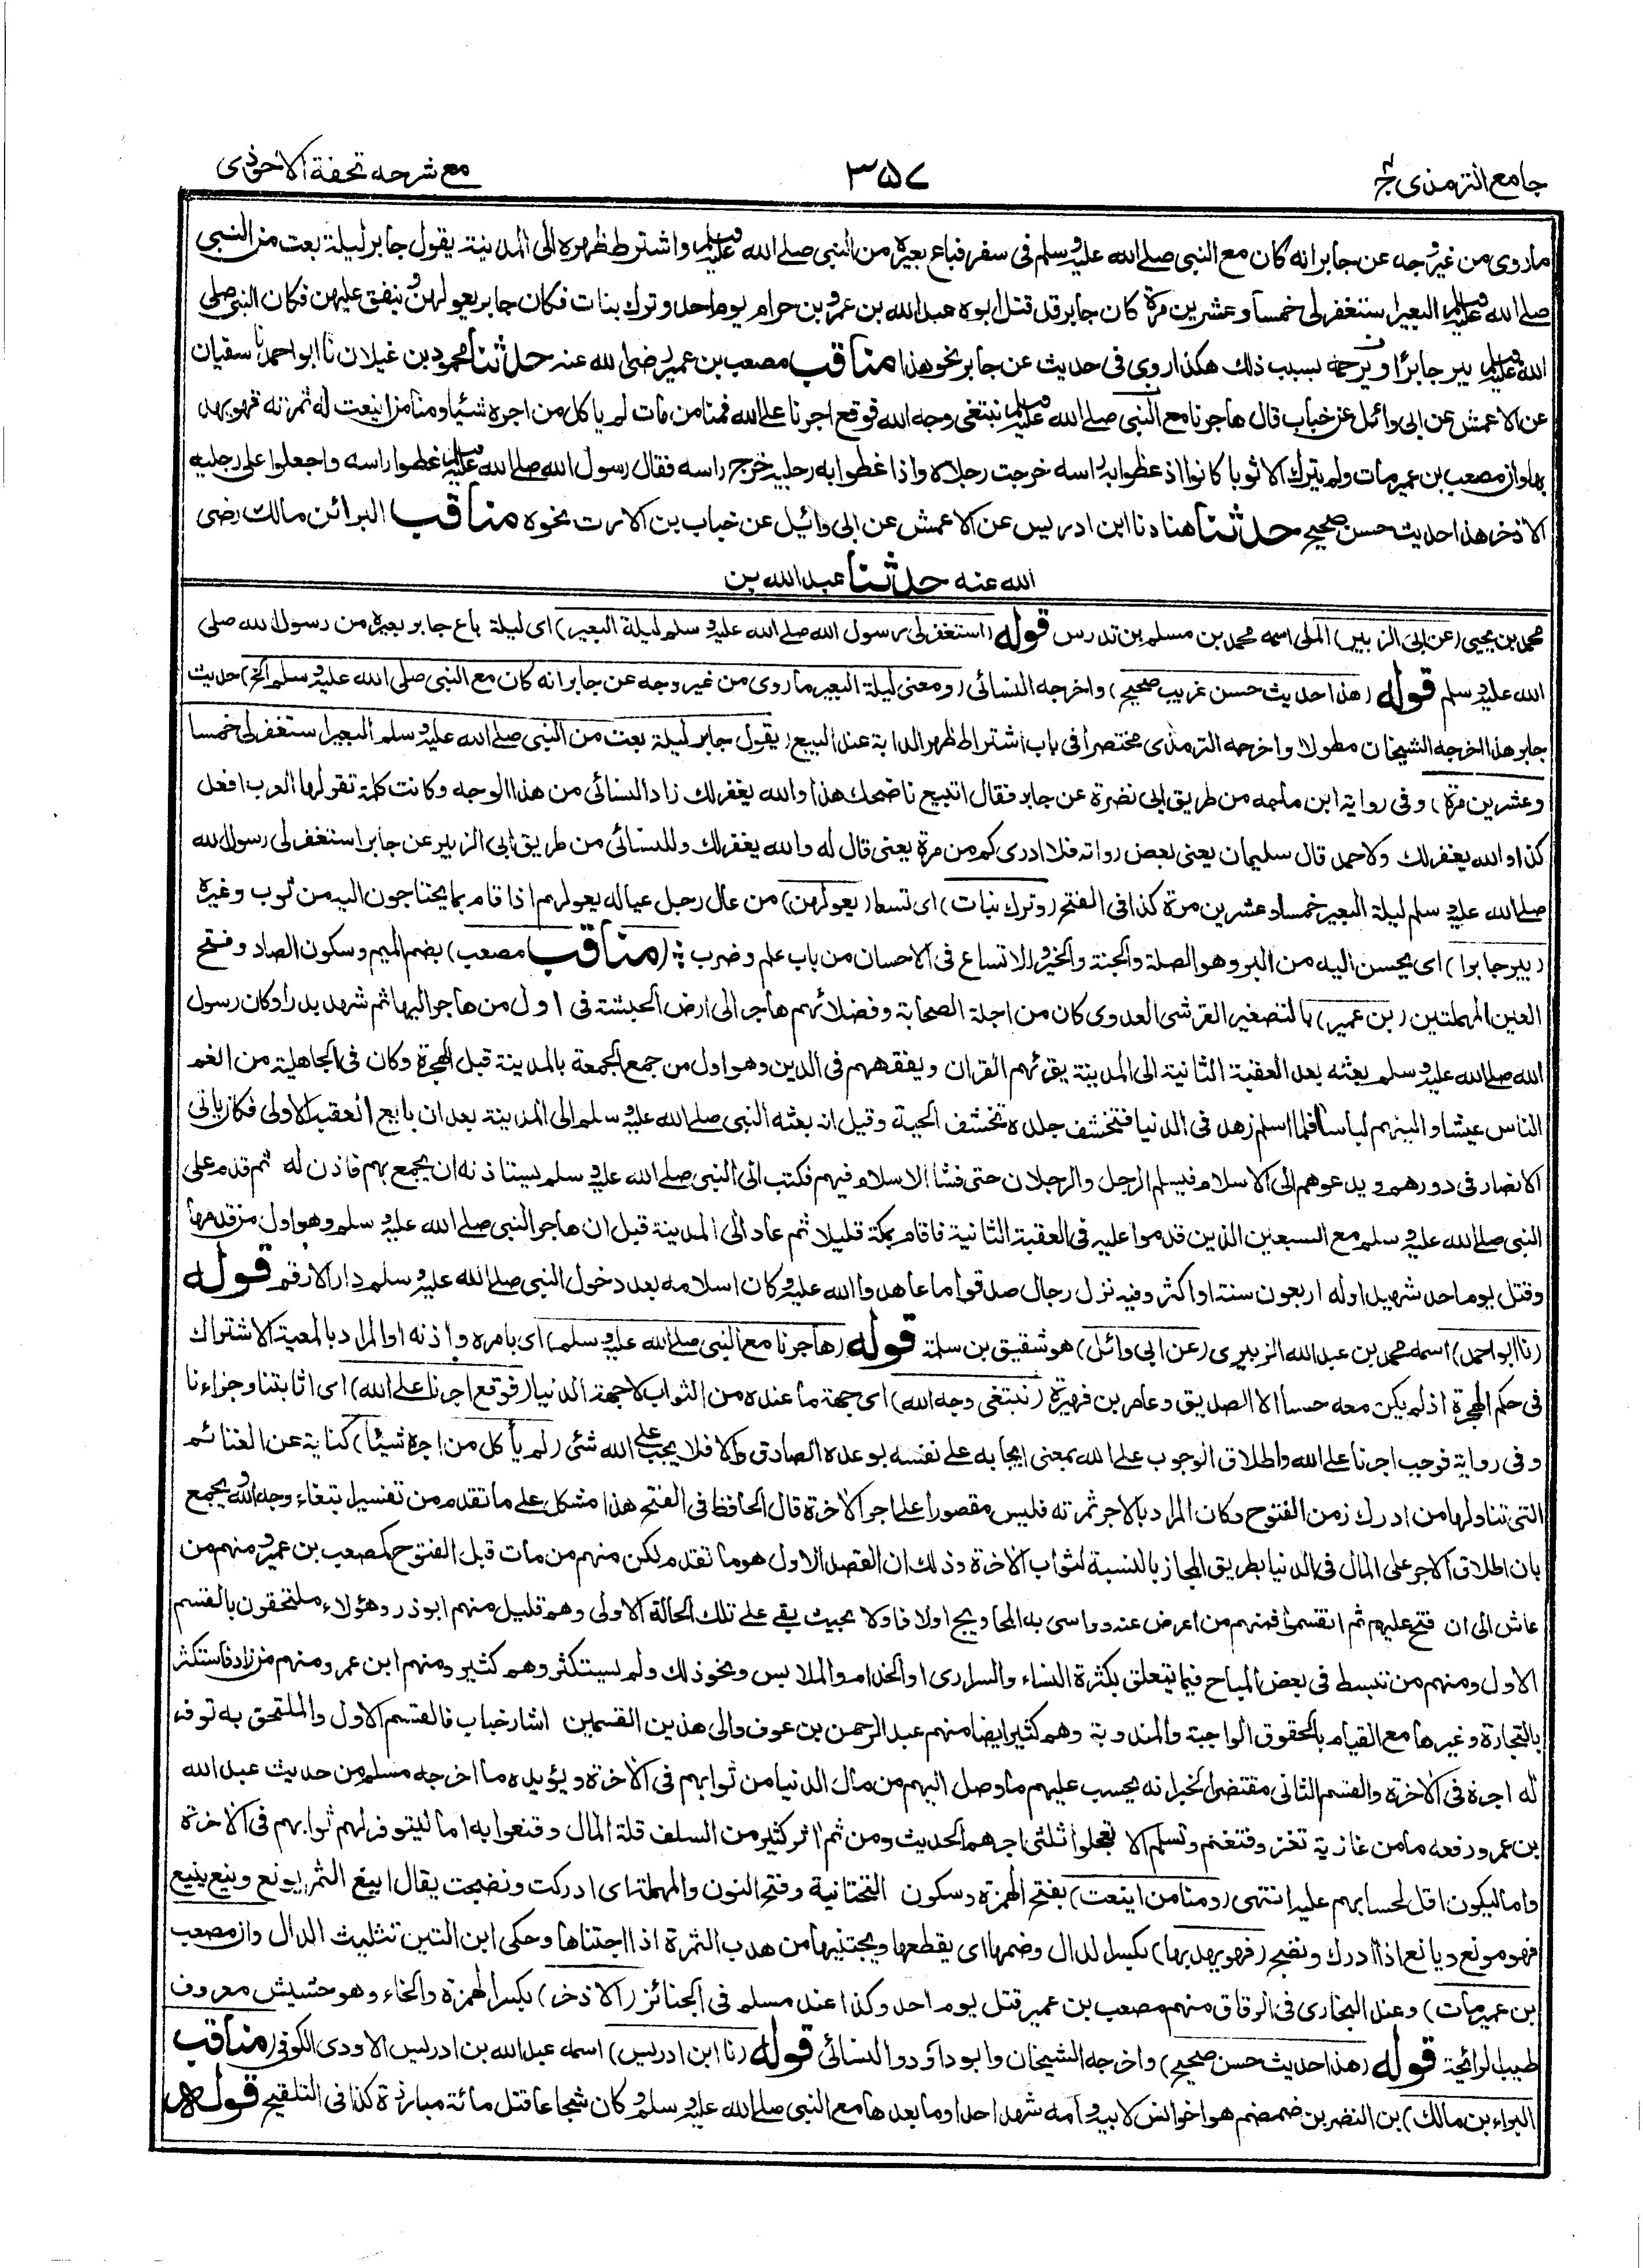 جامع الترمذى ج٤
٣٥٧
مع شرحه تحفة الاحوذى
ماروى من غير وجه عن جابر انه كان مع النبى صلى الله عليه وسلم فى سفر فباع بعيره من النبى صلى الله عليه وسلم واشترط ظهره الى المدينة يقول جابر ليلة بعت من النبى
صلى الله عليه وسلم البعير استغفر لى خمسا وعشرين مرة كان جابر قد قتل ابوه عبد الله بن عمرو بن حرام يوم احد وترك بنات فكان جابر يعولهن وينفق عليهن فكان النبى صلى
الله عليه وسلم يبر جابرا ويرحمه بسبب ذلك هكذا روى فى حديث عن جابر نحو هذا مناقب مصعب بن عمير رضى الله عنه حدثنا محمود بن غيلان نا ابو احمد نا سفيان
عن الاعمش عن ابى وائل عن خباب قال هاجرنا مع النبى صلى الله عليه وسلم نبتغى وجه الله فوقع اجرنا على الله فمنا من مات لم ياكل من اجره شيئا ومنا من اينعت له ثمرته فهو يهد
بها وان مصعب بن عمير مات ولم يترك الا ثوبا كانوا اذ غطوا به راسه خرجت رجلاه واذا غطوا به رجليه خرج راسه فقال رسول الله صلى الله عليه وسلم غطوا راسه واجعلوا على رجليه
الاذخر هذا حديث حسن صحيح حدثنا هناد نا ابن ادريس عن الاعمش عن ابى وائل عن خباب بن الارت نحوه مناقب البراء بن مالك رضى
الله عنه حدثنا عبد الله بن
محمد بن يحيى (عن ابى الزبير) المكى اسمه محمد بن مسلم بن تدرس قوله (استغفر لى رسول الله صلى الله عليه وسلم ليلة البعير) اى ليلة باع جابر بعيره من رسول الله صلى
الله عليه وسلم قوله (هذا حديث حسن غريب صحيح) واخرجه النسائى (ومعنى ليلة البعير ما روى من غير وجه عن جابر انه كان مع النبى صلى الله عليه وسلم الخ) حديث
جابر هذا اخرجه الشيخان مطولا واخرجه الترمذى مختصرا فى باب اشتراط ظهر الدابة عند البيع (يقول جابر ليلة بعت من النبى صلى الله عليه وسلم البعير استغفر لى خمسا
وعشرين مرة) وفى رواية ابن ماجه من طريق ابى نضرة عن جابر فقال اتبيع ناضحك هذا والله يغفر لك زاد النسائى من هذا الوجه وكانت كلمة تقولها العرب افعل
كذا والله يغفر لك ولاحمد قال سليمان يعنى بعض رواته فلا ادرى كم من مرة يعنى قال له والله يغفر لك وللنسائى من طريق ابى الزبير عن جابر استغفر لى رسول الله
صلى الله عليه وسلم ليلة البعير خمسا وعشرين مرة كذا فى الفتح (وترك بنات) اى تسعا (يعولهن) من عال رجل عياله يعولهم اذا قام بما يحتاجون اليه من ثوب وغيره
(يبر جابرا) اى يحسن اليه من البر وهو الصلة والجنة والخير والاتساع فى الاحسان من باب علم وضرب ؞ (مناقب مصعب) بضم الميم وسكون الصاد وفتح
العين المهملتين (بن عمير) بالتصغير القرشى العدوى كان من اجلة الصحابة وفضلائهم هاجر الى ارض الحبشة فى اول من هاجر اليها ثم شهد بدرا وكان رسول
الله صلى الله عليه وسلم بعثه بعد العقبة الثانية الى المدينة يقرئهم القران ويفقههم فى الدين وهو اول من جمع الجمعة بالمدينة قبل الهجرة وكان فى الجاهلية من انعم
الناس عيشا والينهم لباسا فلما اسلم زهد فى الدنيا فتخشف جلده تخشف الحية وقيل انه بعثه النبى صلى الله عليه وسلم الى المدينة بعد ان بايع العقبة الاولى فكان ياتى
الانصار فى دورهم ويدعوهم الى الاسلام فيسلم الرجل والرجلان حتى فشا الاسلام فيهم فكتب الى النبى صلى الله عليه وسلم يستاذنه ان يجمع بهم فاذن له ثم قدم على
النبى صلى الله عليه وسلم مع السبعين الذين قدموا عليه فى العقبة الثانية فاقام بمكة قليلا ثم عاد الى المدينة قبل ان هاجر النبى صلى الله عليه وسلم وهو اول من قدمها
وقتل يوم احد شهيدا وله اربعون سنة او اكثر وفيه نزل رجال صدقوا ما عاهدوا الله عليه وكان اسلامه بعد دخول النبى صلى الله عليه وسلم دار الارقم قوله
(نا ابو احمد) اسمه محمد بن عبد الله الزبيرى (عن ابى وائل) هو شقيق بن سلمة قوله (هاجرنا مع النبى صلى الله عليه وسلم) اى بامره واذنه او المراد بالمعية الاشتراك
فى حكم الهجرة اذ لم يكن معه حسا الا الصديق وعامر بن فهيرة (نبتغى وجه الله) اى جهة ما عنده من الثواب لا جهة الدنيا (فوقع اجرنا على الله) اى اثابتنا وجزاءنا
وفى رواية فوجب اجرنا على الله واطلاق الوجوب على الله بمعنى ايجابه على نفسه بوعده الصادق والا فلا يجب على الله شئ (لم يأكل من اجره شيئا) كناية عن الغنائم
التى تناولها من ادرك زمن الفتوح وكان المراد بالاجر ثمرته فليس مقصورا على اجر الاخرة قال الحافظ فى الفتح هذا مشكل على ما تقدم من تفسير ابتغاء وجه الله ويجمع
بان اطلاق الاجر على المال فى الدنيا بطريق المجاز بالنسبة لثواب الاخرة وذلك ان القصد الاول هو ما تقدم لكن منهم من مات قبل الفتوح كمصعب بن عمير ومنهم من
عاش الى ان فتح عليهم ثم انقسموا فمنهم من اعرض عنه وواسى به المحاويج اولا فاولا بحيث بقى على تلك الحالة الاولى وهم قليل منهم ابوذر وهؤلاء ملتحقون بالقسم
الاول ومنهم من تبسط فى بعض المباح فيما يتعلق بكثرة النساء والسرارى او الخدم والملابس ونحو ذلك ولم يستكثر وهم كثير ومنهم ابن عمر ومنهم من زاد فاستكثر
بالتجارة وغيرها مع القيام بالحقوق الواجبة والمندوبة وهم كثير ايضا منهم عبد الرحمن بن عوف والى هذين القسمين اشار خباب فالقسم الاول والملتحق به توفر
له اجره فى الاخرة والقسم الثانى مقتضى الخبر انه يحسب عليهم ما وصل اليهم من مال الدنيا من ثوابهم فى الاخرة ويؤيده ما اخرجه مسلم من حديث عبد الله
بن عمرو رفعه ما من غازية تغزو فتغنم وتسلم الا تعجلوا ثلثى اجرهم الحديث ومن ثم اثر كثير من السلف قلة المال وقنعوا به اما ليتوفر لهم ثوابهم فى الاخرة
واما ليكون اقل لحسابهم عليه انتهى (ومنا من اينعت) بفتح الهمزة وسكون التحتانية وفتح النون والمهملة اى ادركت ونضجت يقال اينع الثمر يونع وينع يينع
فهو مونع ويانع اذا ادرك ونضج (فهو يهدبها) بكسر الدال وضمها اى يقطعها ويجتنيها من هدب الثمرة اذا اجتناها وحكى ابن التين تثليث الدال وان مصعب
بن عمير مات) وعند البخارى فى الرقاق منهم مصعب بن عمير قتل يوم احد وكذا عند مسلم فى الجنائز (الاذخر) بكسر الهمزة والخاء وهو حشيش معروف
طيب الرائحة قوله (هذا حديث حسن صحيح) واخرجه الشيخان وابو داؤد والنسائى قوله (نا ابن ادريس) اسمه عبد الله بن ادريس الاودى الكوفى (مناقب
البراء بن مالك) بن النضر بن ضمضم هو اخو انس لابيه وامه شهد احدا وما بعدها مع النبى صلى الله عليه وسلم وكان شجاعا قتل مائة مبارزة كذا فى التلقيح قوله